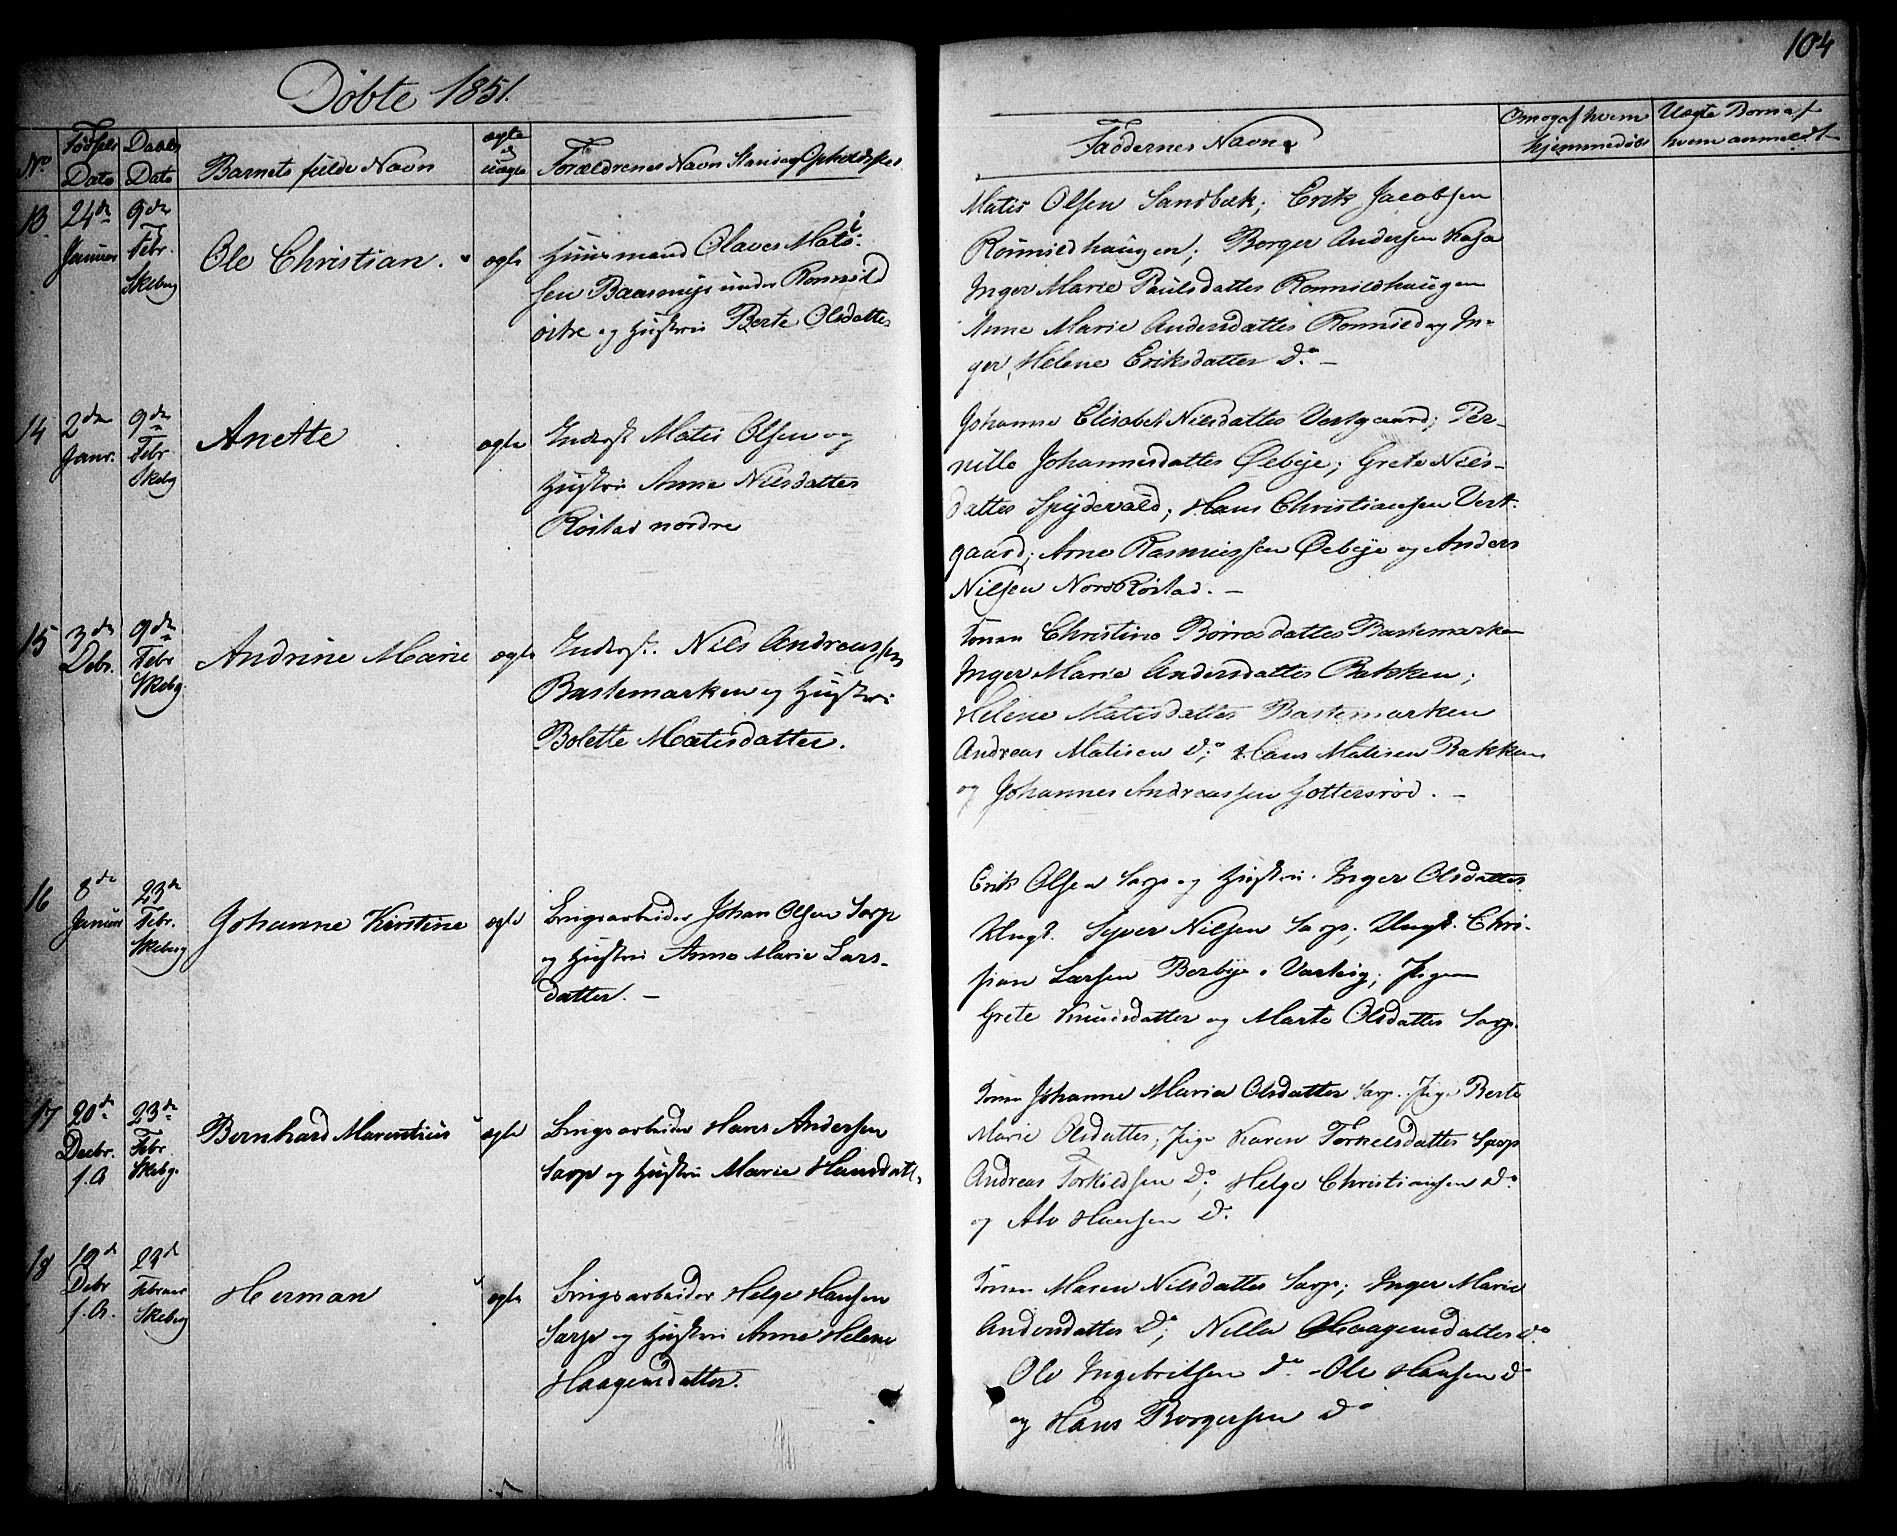 104
Døbte 1851.
No
Fødsels Dato
Daabs Dato
Barnets fulde Navn
ægte el uægte
Forældrenes Navn Stand og Opholdssted
Faddernes Navne
Om og af hvem hjemmedøbt
Uægte Børn af hvem anmeldt
13
24de Januar
9de Febr. Skeberg
Ole Christian.
ægte
Huusmand Olaves Matis
sen Baasmyr under Romsild
østre og Hustru Berte Olsdatter
Matis Olsen Sandbæk; Erik Jacobsen
Romsildhaugen; Borger Andersen Kasa
Inger Marie Paulsdatter Romsildhaugen
Anne Marie Andersdatter Romsild og In-
ger Helene Eriksdatter Do –
14
2den Janr.
9de Febr Skebg
Anette
ægte
Inderst Matis Olsen og
Hustru Anne Nilsdatter
Röstad nordre
Johanne Elisabet Nilsdatter Vestgaard; Per-
nille Johannesdatter Øebye; Grete Niels-
datter Spydevold; Hans Christiansen Vest-
gaard; Arne Rasmussen Øebye og Anders
Nilsen Nord Röstad. –
15
3de Debr.
9de Febr Skebg
Andrine Marie
ægte
Inderst. Nils Andreassen
Bastemarken og Hustru
Bolette Matisdatter.
Konen Christine Börresdatter Bastemarken
Inger Marie Andersdatter Bakken;
Helene Matisdatter Bastemarken
Andreas Matisen Do; Hans Matisen Bakken
og Johannes Andreassen Gottersröd. –
16
8de Januar
23de Febr. Skeberg
Johanne Kirstine
ægte
Brugsarbeider Johan Olsen Sarp
og Hustru Anne Marie Lars-
datter. –
Erik Olsen Sarp og Hustru Inger Olsdatter
Ungk. Syver Nilsen Sarp; Ungk. Chri-
stian Larsen Berbye i Varteig; Pigen
Grete Knudsdatter og Marte Olsdatter Sarp.
17
20de Decbr. f.A
23de Febr Skebg.
Bernhard Marentius
ægte
Brugsarbeider Hans Andersen
Sarp og Hustru Marie Hansdatt.
Konen Johanne Maria Olsdatter Sarp. Pige Berte
Marie Olsdatter; Pige Karen Torkelsdatter Sarp
Andreas Torkildsen Do; Helge Christiansen Do
og Alv Hansen Do
18
19d Debr f.A.
23d Februar Skeberg
Herman
ægte
Brugsarbeider Helge Hansen
Sarp og Hustru Anne Helene
Haagensdatter.
Konen Maren Nilsdatter Sarp; Inger Marie
Andersdatter Do; Nilla Haagensdatter Do
Ole Ingebritsen Do – Ole Hansen Do
og Hans Borgersen Do